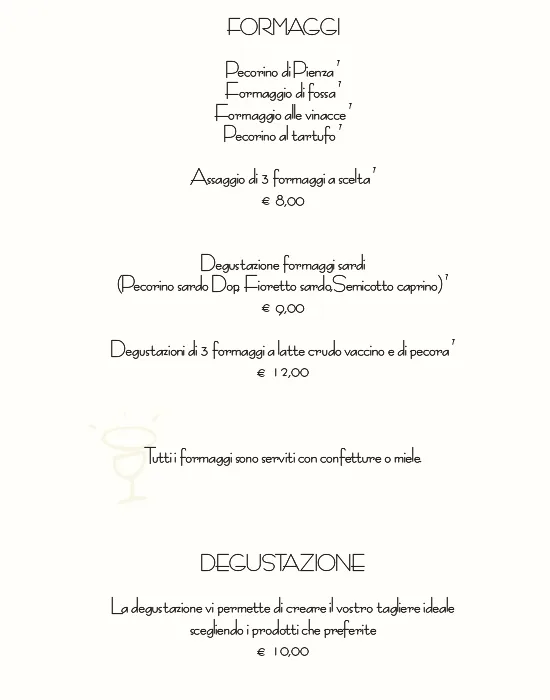 FORMAGGI
Pecorino di Pienza 7
Formaggio di fossa 7
Formaggio alle vinacce 7
Pecorino al tartufo 7
Assaggio di 3 formaggi a scelta 7
€ 8,00
Degustazione formaggi sardi
(Pecorino sardo Dop, Fioretto sardo,Semicotto caprino) 7
€ 9,00
Degustazioni di 3 formaggi a latte crudo vaccino e di pecora 7
€ 12,00
Tutti i formaggi sono serviti con confetture o miele.
DEGUSTAZIONE
La degustazione vi permette di creare il vostro tagliere ideale
scegliendo i prodotti che preferite
€ 10,00